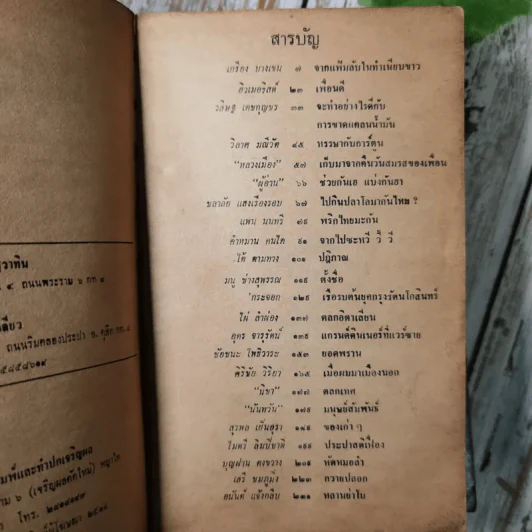 สารบัญ
เกรียง บางเขน ๗ จากแฟ้มลับในทำเนียบขาว
ฮิวเมอริสต์ ๒๓ เพื่อนดี
วสิษฐ เดชกุญชร ๓๓ จะทำอย่างไรดีกับ
การขาดแคลนน้ำมัน
วิลาศ มณีวัต ๔๕ หรรษากับการ์ตูน
"หลวงเมือง" ๕๗ เก็บมาจากคืนวันสมรสของเพื่อน
"ผู้อ่าน" ๖๖ ช่วยกันเฮ แบ่งกันฮา
ชลาลัย แสงเรืองรอบ ๖๗ ไปกินปลาโลมากันไหม ?
แพน นนทรี ๗๕ พริกไทยมะกัน
คำหมาน คนไค ๙๑ จากไปซะทวี วี้ วี
ใต้ ตามทาง ๑๐๑ ปฏิกาณ
มนู ช่างสุพรรณ ๑๑๕ ตั้งชื่อ
"กระจอก" ๑๒๕ เรือรบต้นยุคกรุงรัตนโกสินทร์
ไผ่ ลำผ่อง ๑๓๗ ตลกอิตาเลียน
อุดร จารุรัตน์ ๑๓๙ แกรนด์ดินเนอร์ที่แวร์ซาย
ชัยชนะ โพธิวาระ ๑๕๓ ยอดพราน
ศิริชัย วิริยา ๑๖๕ เมื่อผมมาเมืองนอก
"นิชา" ๑๗๗ ตลกเทศ
"นันทวัน" ๑๗๙ มนุษย์สัมพันธ์
สุรพล เย็นอุรา ๑๘๙ ของเก่า ๆ
ไมตรี ลิมปิชาติ ๑๙๙ ประปาสดีเฟื่อง
บุญผ่าน คงขวาง ๒๐๙ หัดหมอลำ
เสรี ชมภูมิ่ง ๒๒๓ ควายปลอก
อนันต์ แจ้งกลีบ ๒๓๑ หลานย่าโม
วาทิน
๔ ถนนพระราม ๖ กท ๔
เดียว
ถนนริมคลองประปา
พิมพ์และทำปกเจริญผล
(เจริญผลตัดใหม่) พญาไท
โทร.